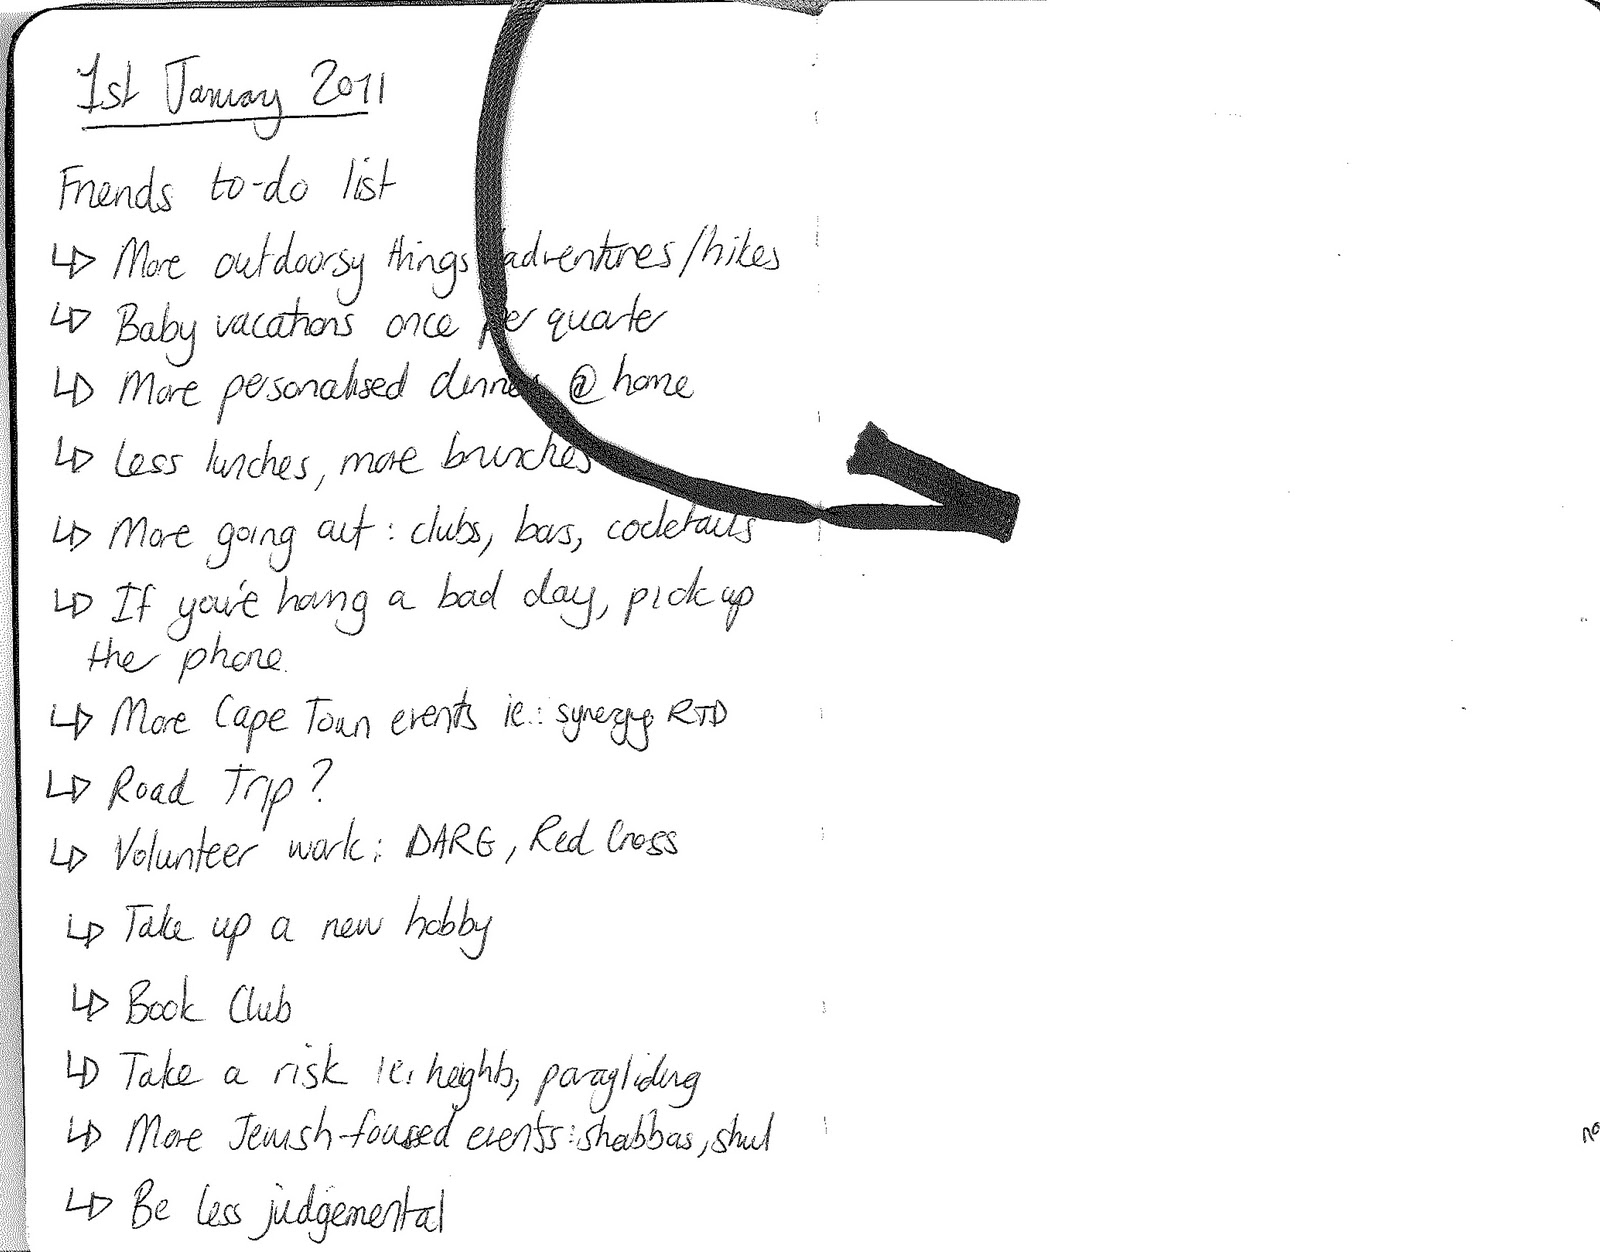 1st January 2011
Friends to-do list
↳ More outdoorsy things/adventures/hikes
↳ Baby vacations once per quarter
↳ More personalised dinner @ home
↳ Less lunches, more brunches
↳ More going out: clubs, bars, cocktails
↳ If you're having a bad day, pick up
the phone.
↳ More Cape Town events ie.: synergy, RTD
↳ Road Trip?
↳ Volunteer work: DARG, Red Cross
↳ Take up a new hobby
↳ Book Club
↳ Take a risk ie: heights, paragliding
↳ More Jewish-focused events: shabbas, shul
↳ Be less judgemental